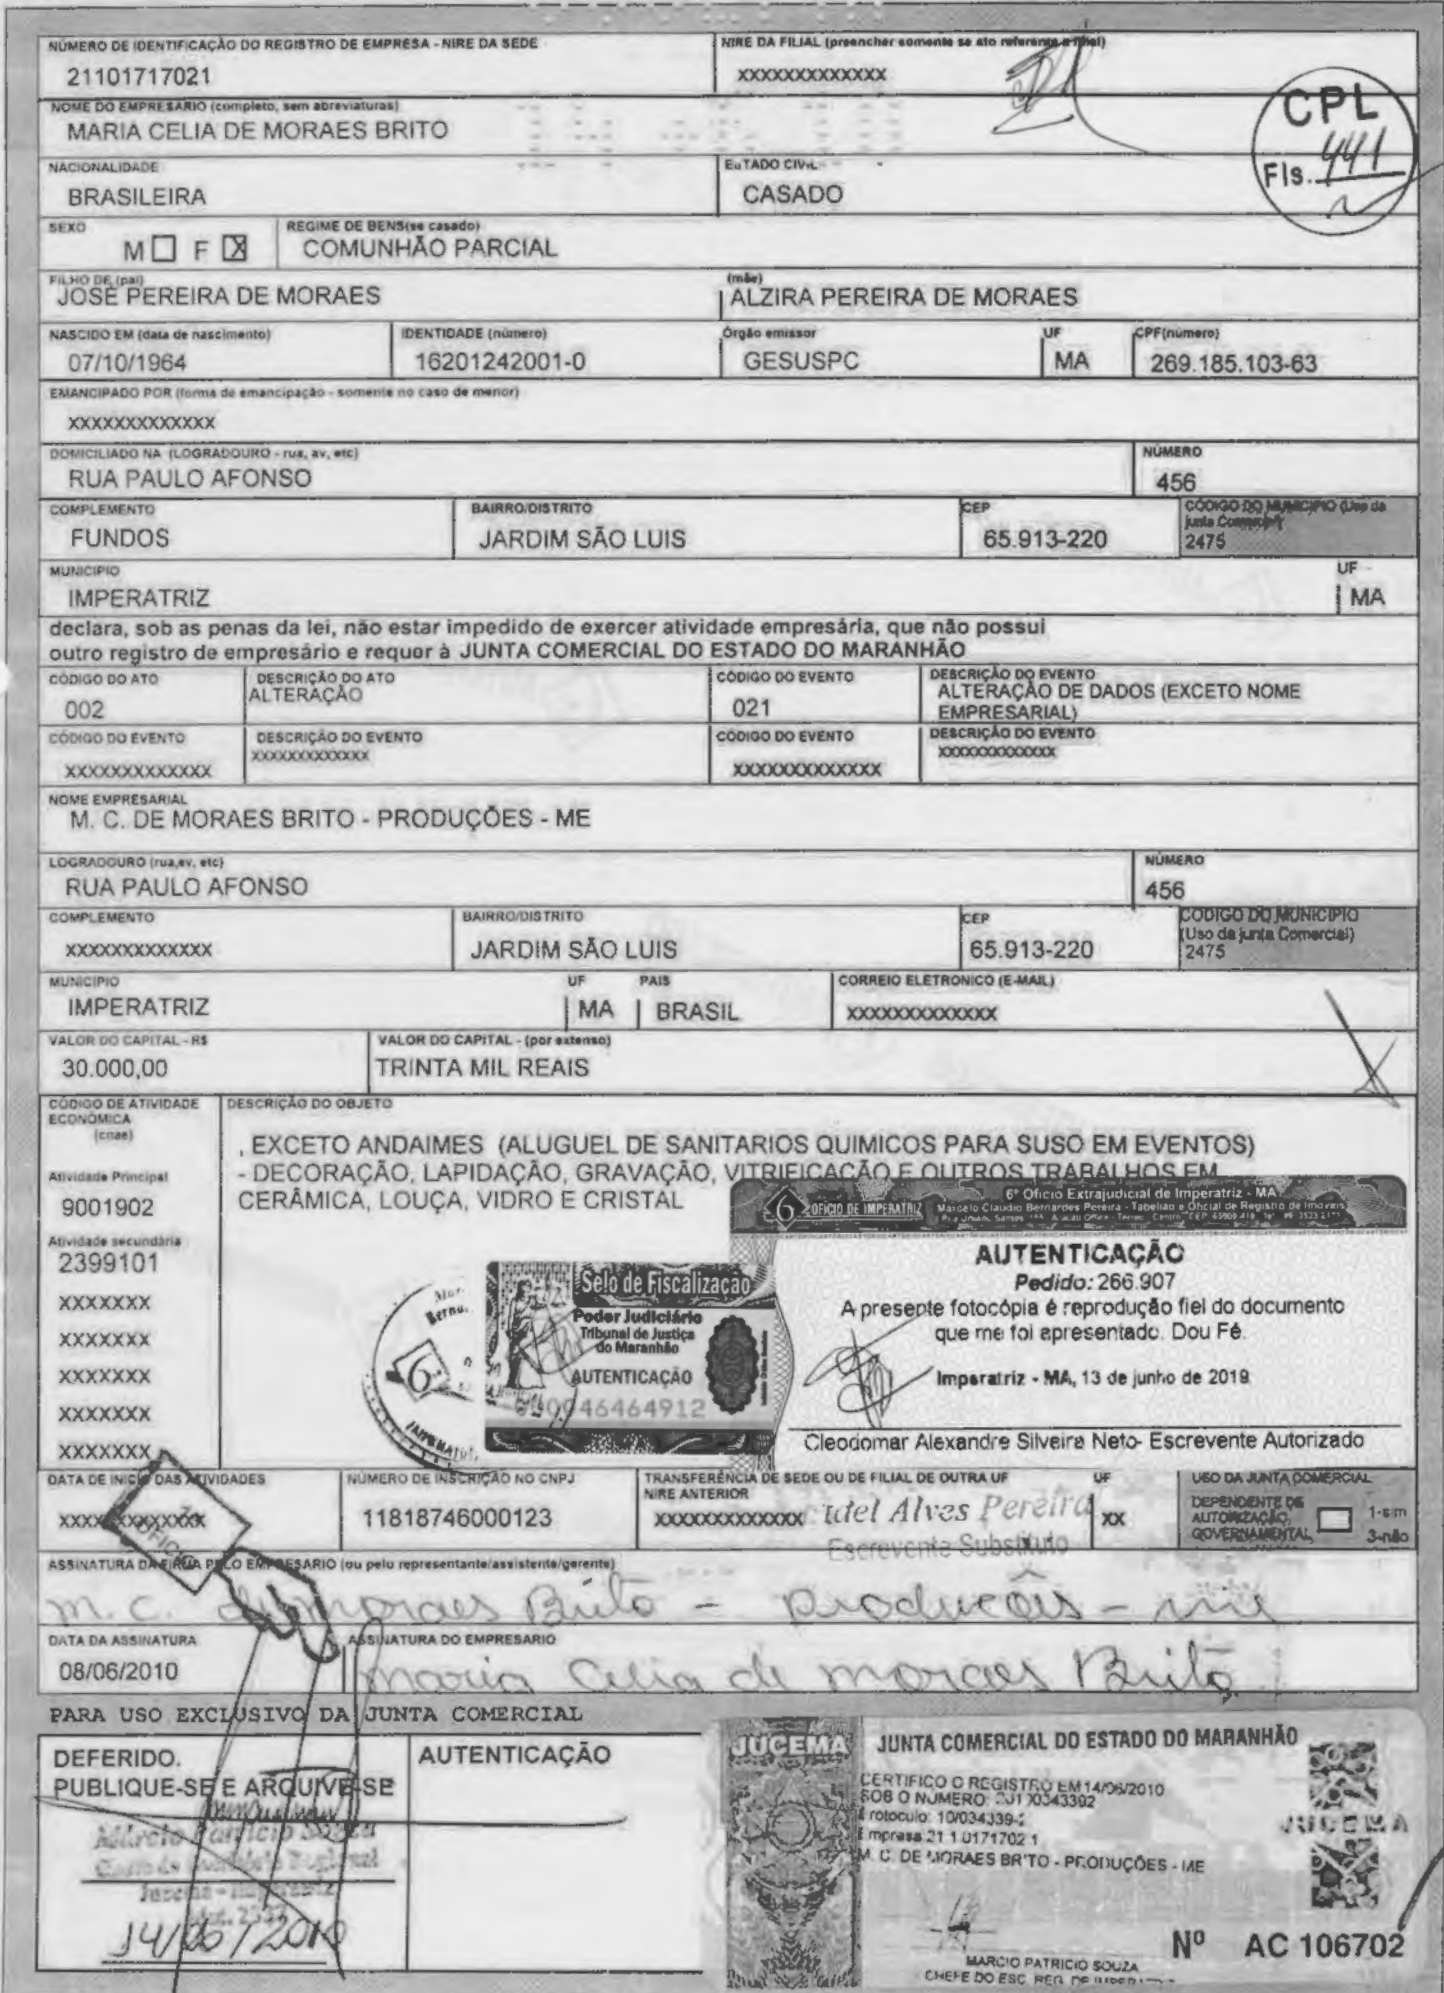 NÚMERO DE IDENTIFICAÇÃO DO REGISTRO DE EMPRESA - NIRE DA SEDE
21101717021
NIRE DA FILIAL (preencher somente se ato referente a filial)
XXXXXXXXXXXXX
CPL
Fls. 441
NOME DO EMPRESÁRIO (completo, sem abreviaturas)
MARIA CELIA DE MORAES BRITO
NACIONALIDADE
BRASILEIRA
ESTADO CIVIL
CASADO
SEXO
M ☐ F ☒
REGIME DE BENS(se casado)
COMUNHÃO PARCIAL
FILHO DE (pai)
JOSÉ PEREIRA DE MORAES
(mãe)
ALZIRA PEREIRA DE MORAES
NASCIDO EM (data de nascimento)
07/10/1964
IDENTIDADE (número)
16201242001-0
Órgão emissor
GESUSPC
UF
MA
CPF(número)
269.185.103-63
EMANCIPADO POR (forma de emancipação - somente no caso de menor)
XXXXXXXXXXXXX
DOMICILIADO NA (LOGRADOURO - rua, av, etc)
RUA PAULO AFONSO
NÚMERO
456
COMPLEMENTO
FUNDOS
BAIRRO/DISTRITO
JARDIM SÃO LUIS
CEP
65.913-220
CÓDIGO DO MUNICIPIO (Uso da
junta Comercial)
2475
MUNICIPIO
IMPERATRIZ
UF
MA
declara, sob as penas da lei, não estar impedido de exercer atividade empresária, que não possui
outro registro de empresário e requer à JUNTA COMERCIAL DO ESTADO DO MARANHÃO
CÓDIGO DO ATO
002
DESCRIÇÃO DO ATO
ALTERAÇÃO
CÓDIGO DO EVENTO
021
DESCRIÇÃO DO EVENTO
ALTERAÇÃO DE DADOS (EXCETO NOME
EMPRESARIAL)
CÓDIGO DO EVENTO
XXXXXXXXXXXXX
DESCRIÇÃO DO EVENTO
XXXXXXXXXXXXX
CÓDIGO DO EVENTO
XXXXXXXXXXXXX
DESCRIÇÃO DO EVENTO
XXXXXXXXXXXXX
NOME EMPRESARIAL
M. C. DE MORAES BRITO - PRODUÇÕES - ME
LOGRADOURO (rua,av, etc)
RUA PAULO AFONSO
NÚMERO
456
COMPLEMENTO
XXXXXXXXXXXXX
BAIRRO/DISTRITO
JARDIM SÃO LUIS
CEP
65.913-220
CODIGO DO MUNICIPIO
(Uso da junta Comercial)
2475
MUNICIPIO
IMPERATRIZ
UF
MA
PAIS
BRASIL
CORREIO ELETRONICO (E-MAIL)
XXXXXXXXXXXXX
VALOR DO CAPITAL - R$
30.000,00
VALOR DO CAPITAL - (por extenso)
TRINTA MIL REAIS
CÓDIGO DE ATIVIDADE
ECONÔMICA
(cnae)
Atividade Principal
9001902
Atividade secundária
2399101
XXXXXXX
XXXXXXX
XXXXXXX
XXXXXXX
XXXXXXX
DESCRIÇÃO DO OBJETO
, EXCETO ANDAIMES (ALUGUEL DE SANITARIOS QUIMICOS PARA SUSO EM EVENTOS)
- DECORAÇÃO, LAPIDAÇÃO, GRAVAÇÃO, VITRIFICAÇÃO E OUTROS TRABALHOS EM
CERÂMICA, LOUÇA, VIDRO E CRISTAL
6 OFICIO DE IMPERATRIZ
6º Oficio Extrajudicial de Imperatriz - MA
Marcelo Claudio Bernardes Pereira - Tabelião e Oficial de Registro de Imóveis
AUTENTICAÇÃO
Pedido: 266.907
A presente fotocópia é reprodução fiel do documento
que me foi apresentado. Dou Fé.
Imperatriz - MA, 13 de junho de 2019
Cleodomar Alexandre Silveira Neto- Escrevente Autorizado
Selo de Fiscalização
Poder Judiciário
Tribunal de Justiça
do Maranhão
AUTENTICAÇÃO
46464912
6
DATA DE INICIO DAS ATIVIDADES
XXXXXXXXXXXXX
NÚMERO DE INSCRIÇÃO NO CNPJ
11818746000123
TRANSFERÊNCIA DE SEDE OU DE FILIAL DE OUTRA UF
NIRE ANTERIOR
XXXXXXXXXXXXX
UF
XX
Alves Pereira
Escrevente Substituto
USO DA JUNTA COMERCIAL
DEPENDENTE DE
AUTORIZAÇÃO,
GOVERNAMENTAL,
1-sim
3-não
OFICIO
ASSINATURA DA FIRMA PELO EMPRESARIO (ou pelo representante/assistente/gerente)
m. c. de moraes Brito - produções - me
DATA DA ASSINATURA
08/06/2010
ASSINATURA DO EMPRESARIO
maria Celia de moraes Brito
PARA USO EXCLUSIVO DA JUNTA COMERCIAL
DEFERIDO.
PUBLIQUE-SE E ARQUIVE-SE
Márcio Patrício Souza
14/06/2010
AUTENTICAÇÃO
JUCEMA
JUNTA COMERCIAL DO ESTADO DO MARANHÃO
CERTIFICO O REGISTRO EM 14/06/2010
SOB O NÚMERO:
Empresa 21 1 0171702 1
M. C. DE MORAES BRITO - PRODUÇÕES - ME
JUCEMA
MARCIO PATRICIO SOUZA
CHEFE DO ESC. REG. DE
Nº AC 106702